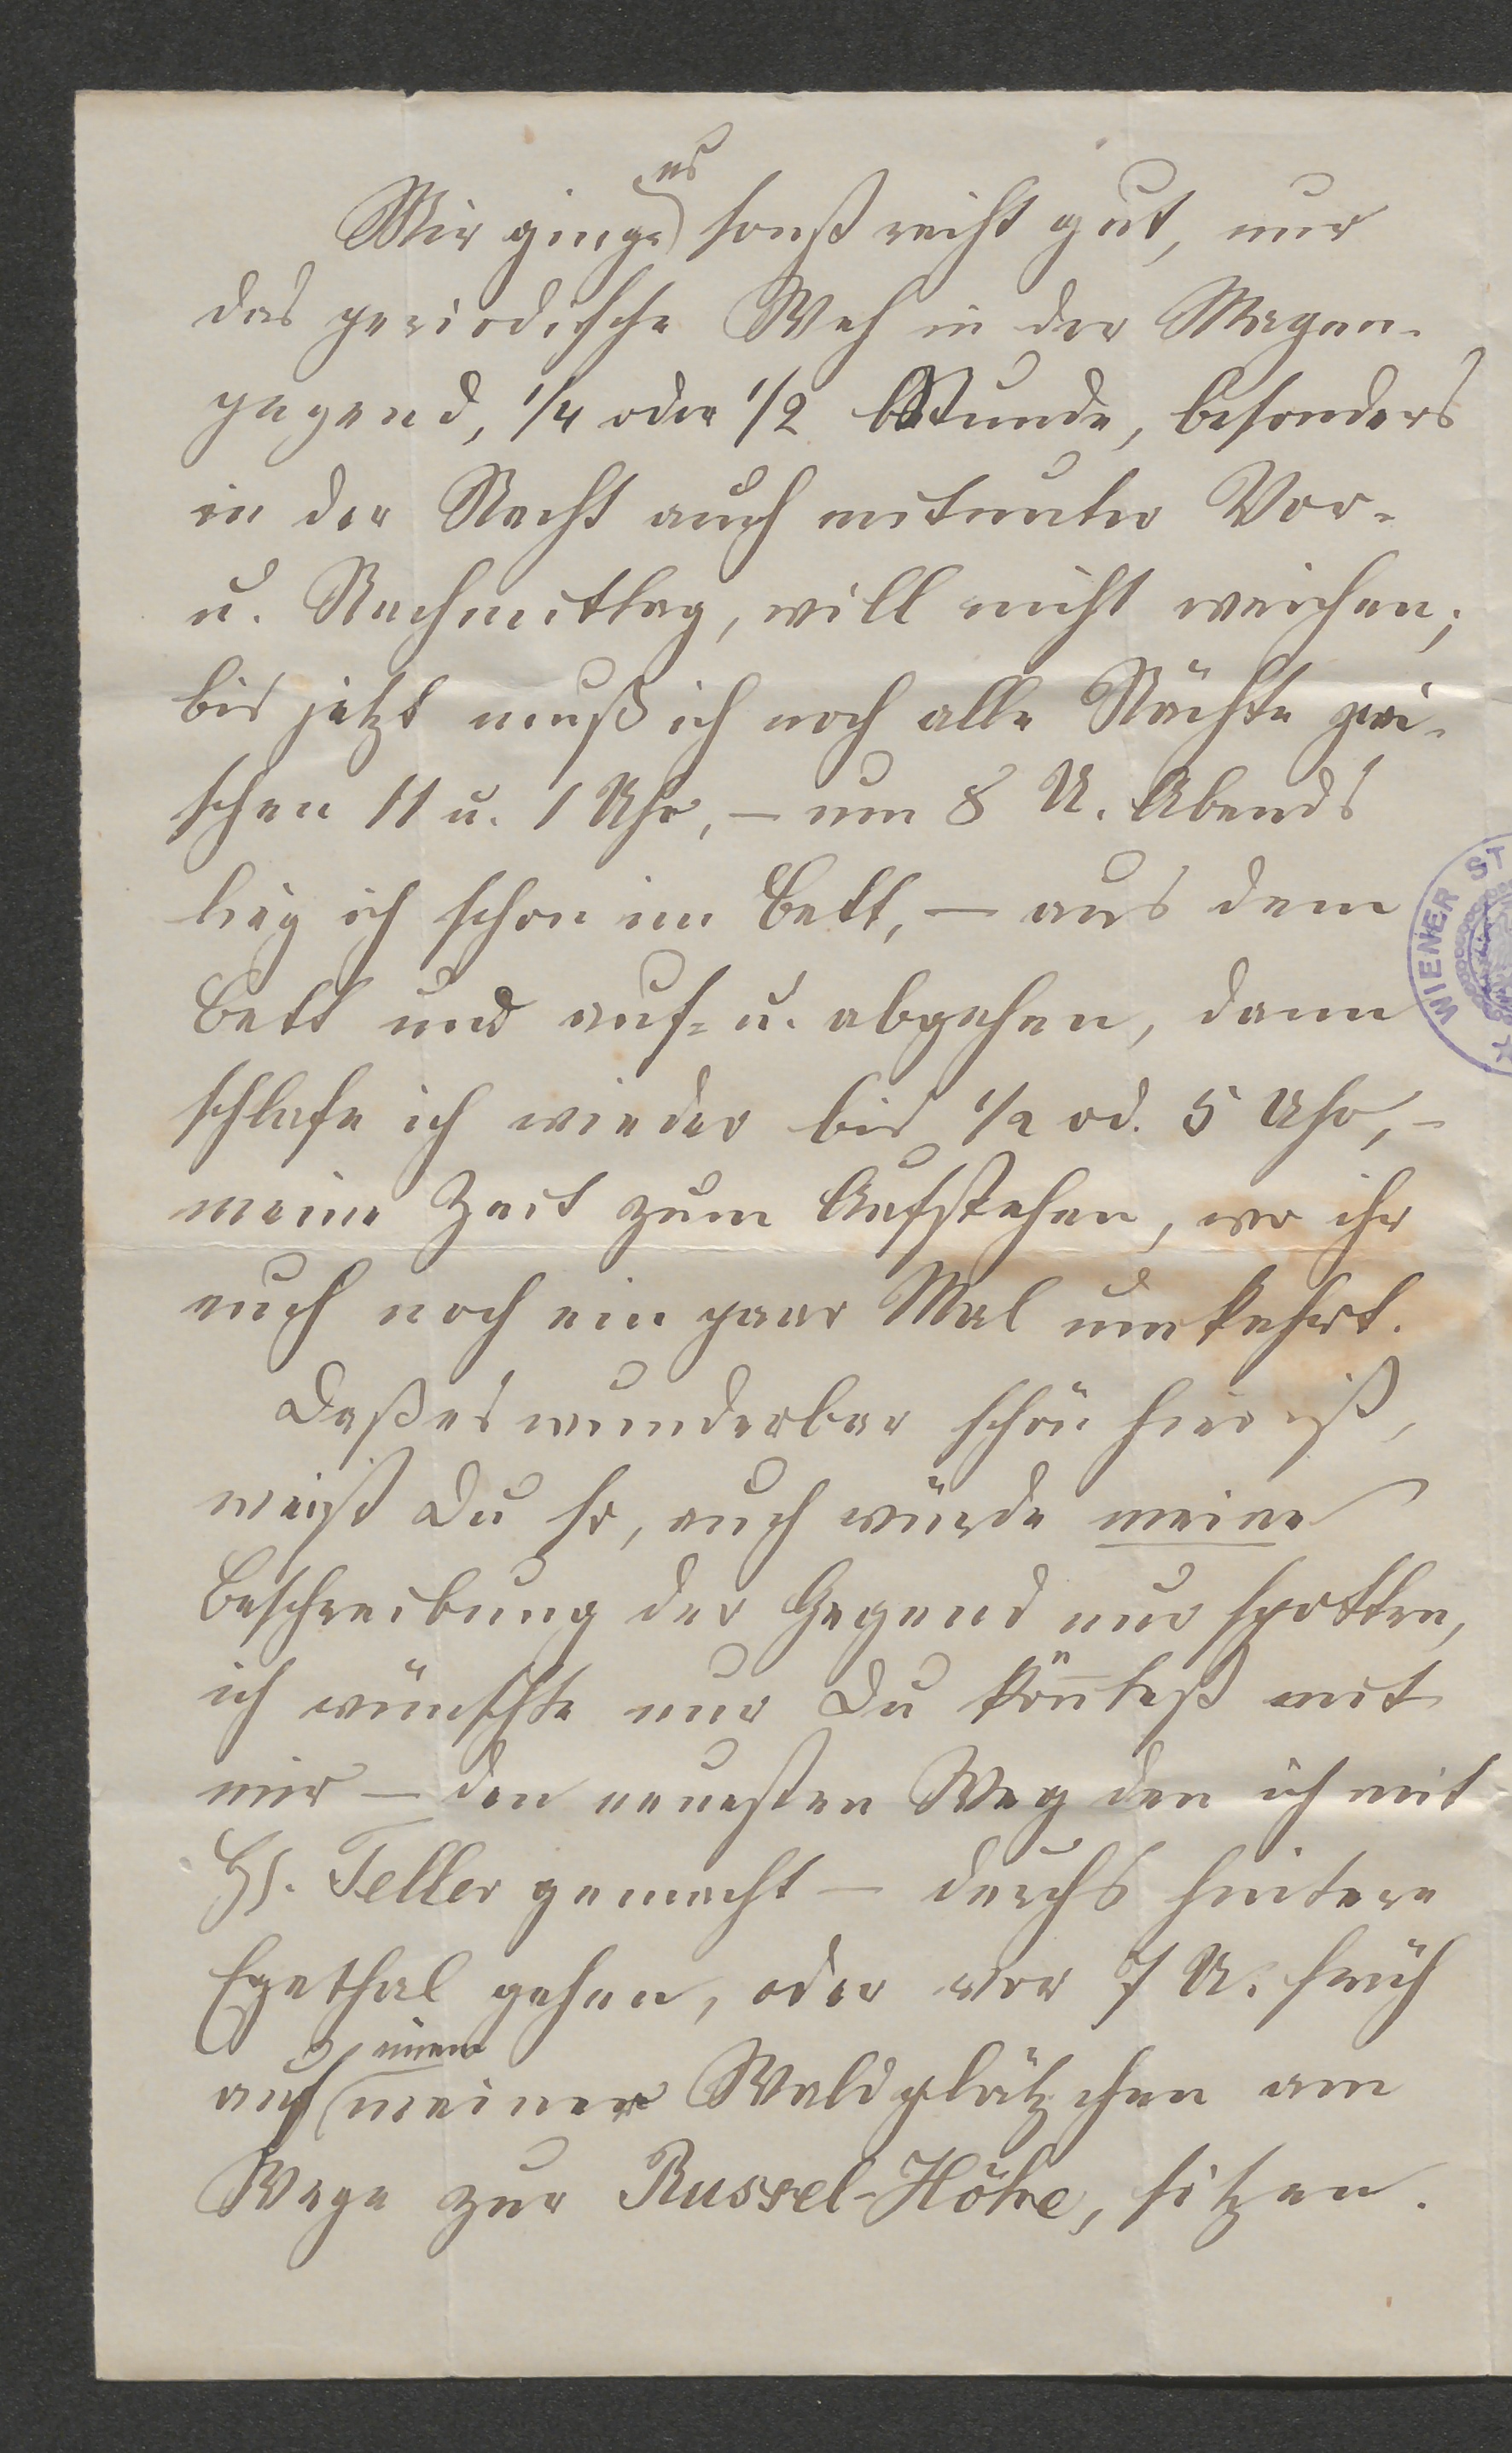 Mir ginge es sonst recht gut, nur
das periodische Weh in der Magen-
gegend, 1/4 oder 1/2 Stunde, besonders
in der Nacht auch mitunter Vor-
u. Nachmittag, will nicht weichen;
bis jetzt muß ich noch alle Nächte zwi-
schen 11 u. 1 Uhr, – um 8 U. Abends
lieg ich schon im Bett, – aus dem
Bett und auf- u. abgehen, dann
schlafe ich wieder bis 1/2 od. 5 Uhr, –
meine Zeit zum Aufstehen, wo ihr
euch noch ein paar Mal umkehrt.
Daß es wunderbar schön hier ist,
weißt Du so, auch würde meine
Beschreibung der Gegend nur spotten,
ich wünschte nur Du kön̄test mit
mir – den neuesten Weg den ich mit
H. Teller gemacht – durchs hintere
Egethal gehen, oder vor 7 U. früh
auf einem meiner Waldplätzchen am
Wege zur Russel-Höhe, sitzen.
WIENER ST